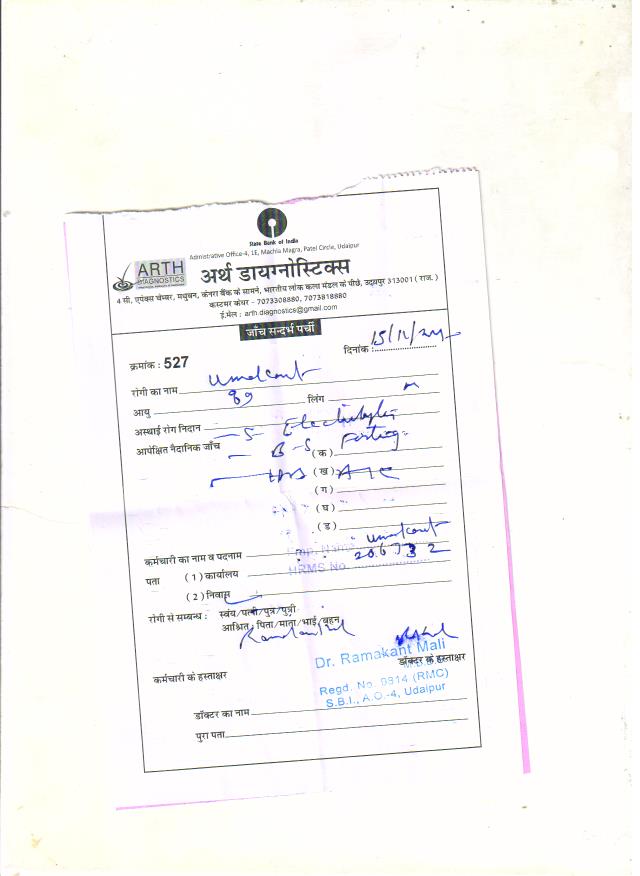 State Bank of India
Admistrative Office-4, 1E, Machla Magra, Patel Circle, Udaipur
ARTH
DIAGNOSTICS
अर्थ डायग्नोस्टिक्स
4 सी, एपेक्स चेम्बर, मधुबन, केनरा बैंक के सामने, भारतीय लोक कला मंडल के पीछे, उदयपुर 313001 ( राज. )
कस्टमर केयर - 7073308880, 7073818880
ई.मेल : arth.diagnostics@gmail.com
जाँच सन्दर्भ पर्ची
क्रमांक : 527
दिनांक :
रोगी का नाम Umakant
आयु लिंग M
अस्थाई रोग निदान
S Electrolyte
आपेक्षित नैदानिक जाँच
B-S (क) Fasting
(ख) A1C
(ग)
(घ)
(ड)
कर्मचारी का नाम व पदनाम Umakant
Emp. Name
पता ( 1 ) कार्यालय
HRMS No.
( 2 ) निवास
रोगी से सम्बन्ध : स्वंय/पत्नी/पुत्र/पुत्री
आश्रित पिता/माता/भाई/बहन
Dr. Ramakant Mali
कर्मचारी के हस्ताक्षर डॉक्टर के हस्ताक्षर
Regd. No. 0914 (RMC)
S.B.I., A.O.-4, Udaipur
डॉक्टर का नाम
पुरा पता